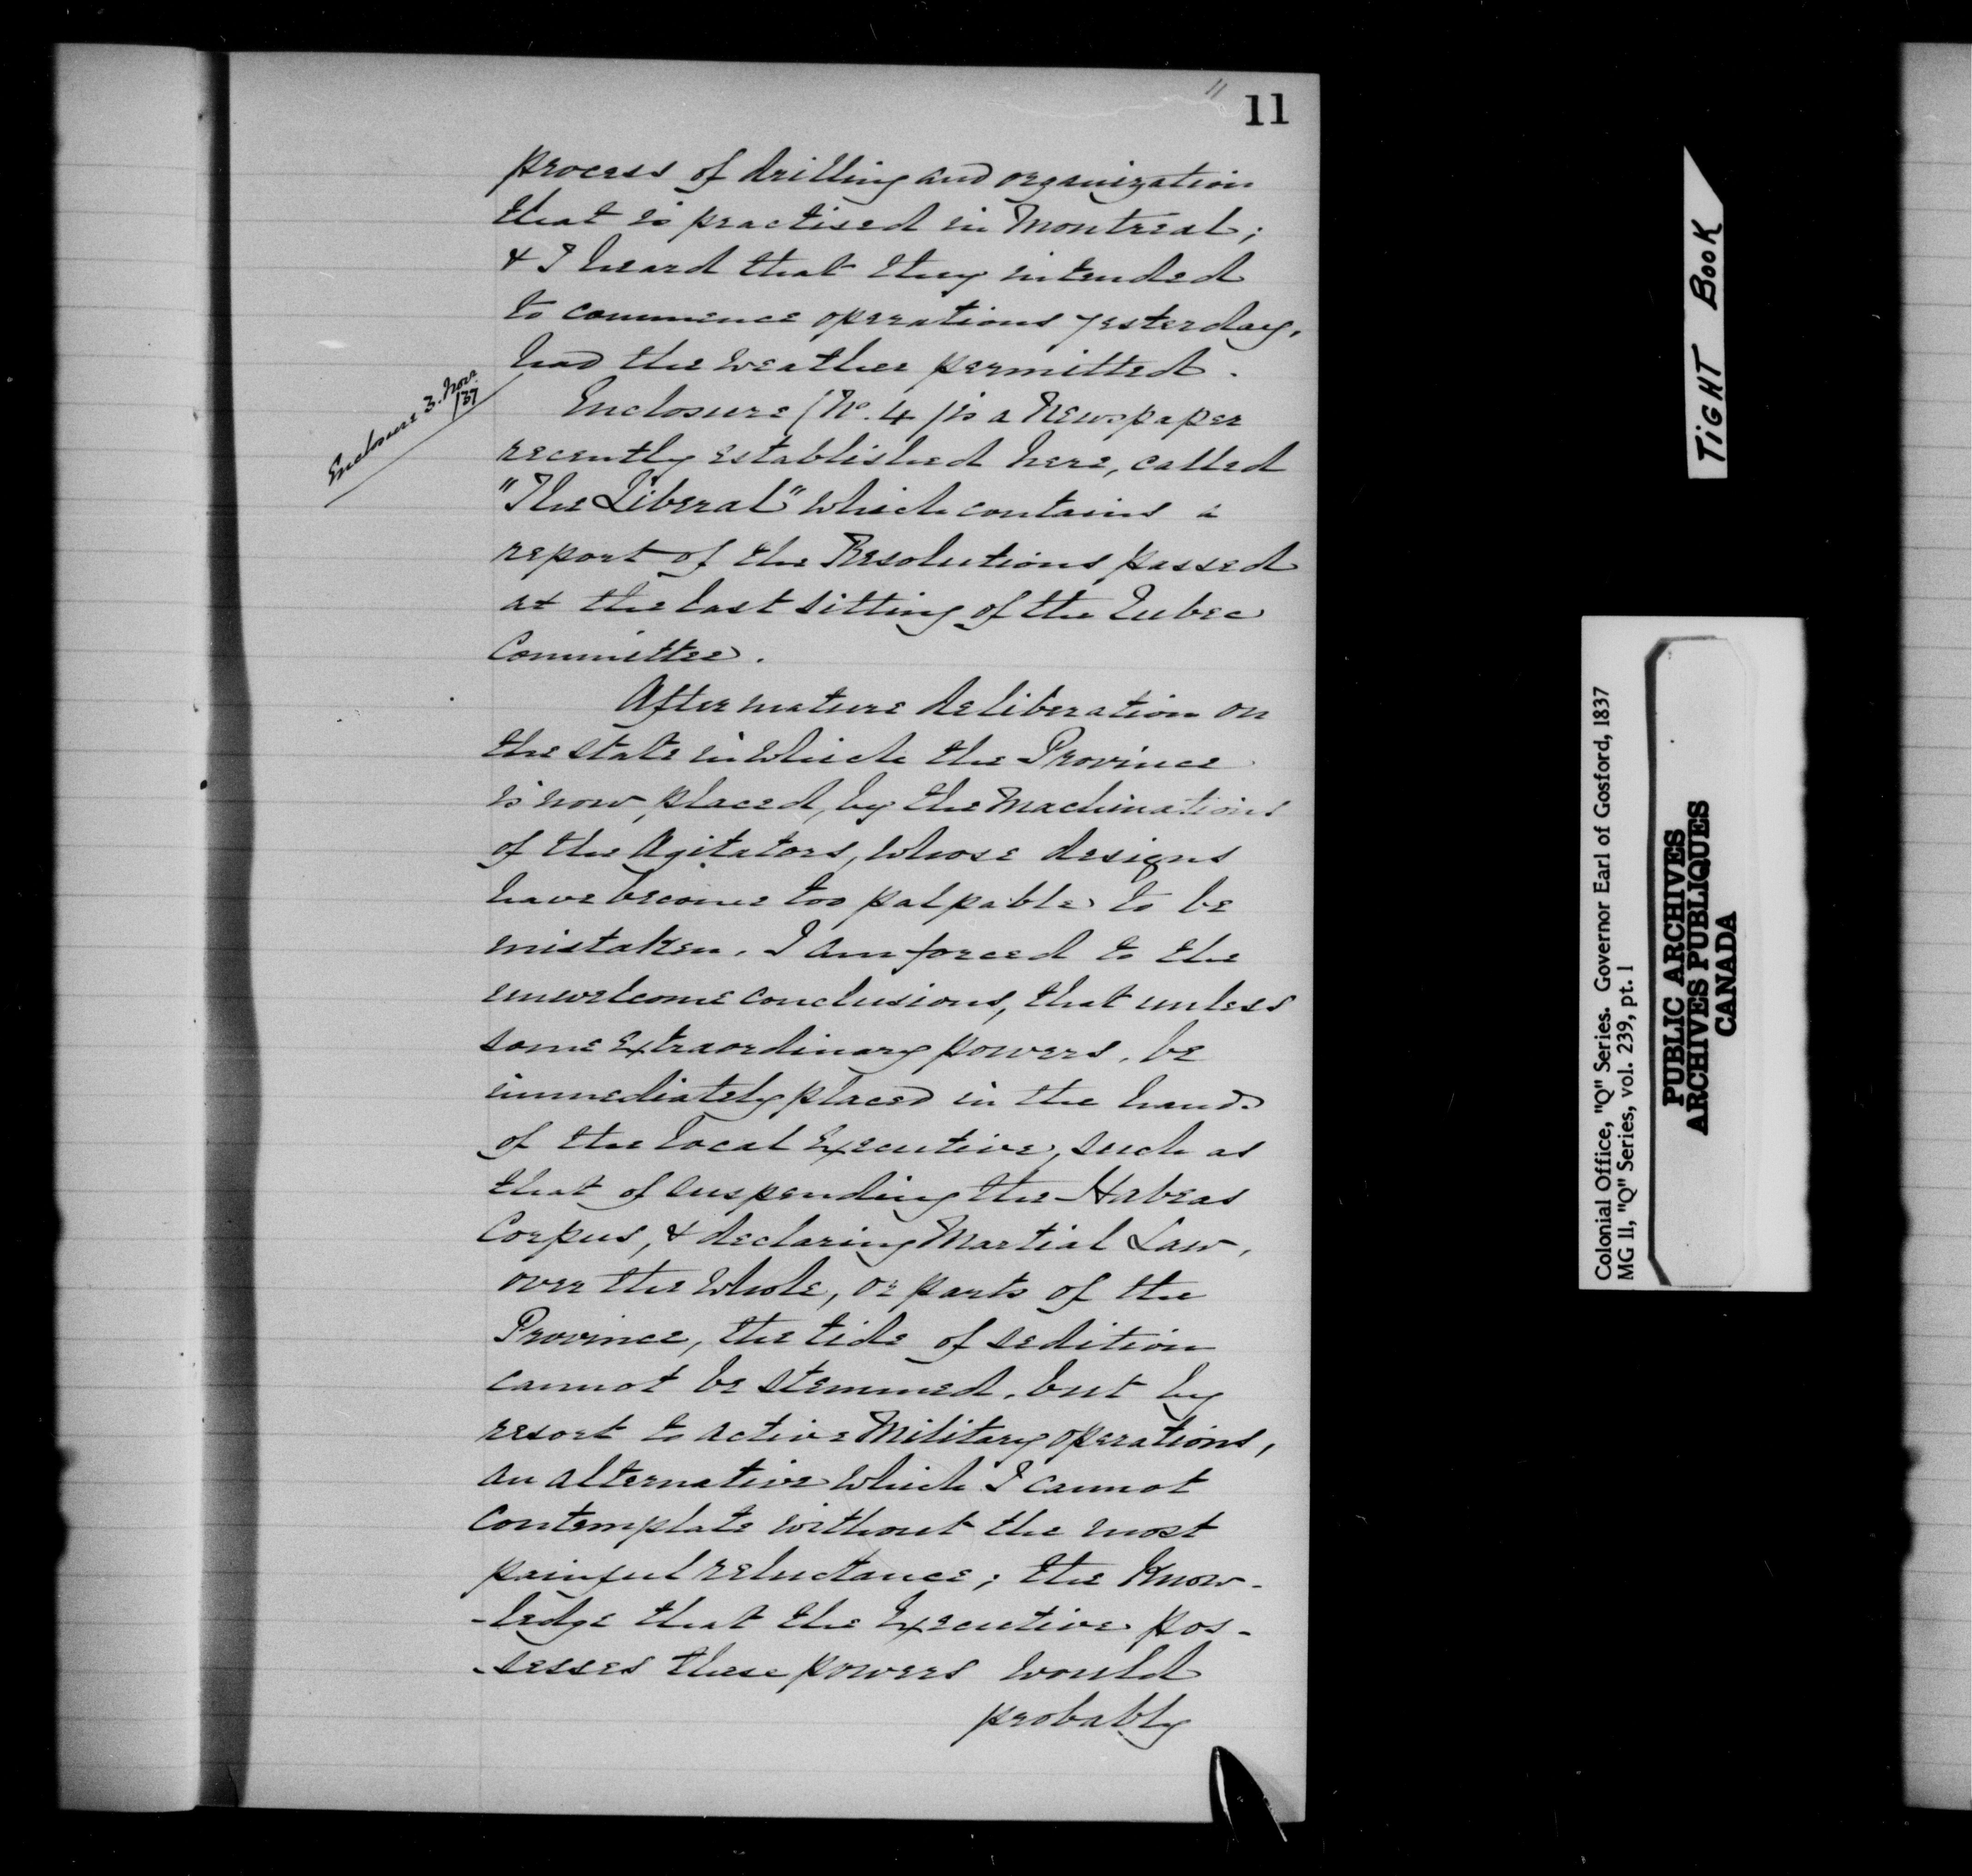 11
11
process of drilling and organization
that is practised in Montreal;
& I heard that they intended
to commence operations yesterday,
had the weather permitted.
Enclosure 3. Nov.
/37
Enclosure (No. 4) is a Newspaper
recently established here, called
"The Liberal" which contains a
report of the Resolutions passed
at the last sitting of the Quebec
Committee.
After mature deliberation on
the state in which the Province
is now placed, by the Machinations
of the Agitators, whose designs
have become too palpable to be
mistaken, I am forced to the
unwelcome conclusions, that unless
some extraordinary powers, be
immediately placed in the hands
of the local Executive, such as
that of suspending the Habeas
Corpus, & declaring Martial Law,
over the whole, or parts of the
Province, the tide of sedition
cannot be stemmed, but by
resort to active Military operations,
an alternative which I cannot
contemplate without the most
painful reluctance; the Know-
-ledge that the Executive pos-
-sesses these powers would
probably
TIGHT BOOK
Colonial Office, "Q" Series. Governor Earl of Gosford, 1837
MG 11, "Q" Series, vol. 239, pt. 1
PUBLIC ARCHIVES
ARCHIVES PUBLIQUES
CANADA